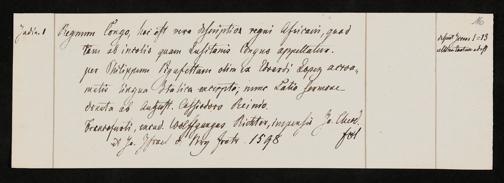 India. 1
Regnum Congo, hoc est vera descriptio regni Africani, quod
tam ab incolis quam Lusitanis Congus appellatur.
per Philippum Pigafettam olim ex Edoardi Lopez acroa-
matis lingua Italica excerpta; nunc Latio sermone
donata ab August. Cassiodoro Reinio.
Francofurti, excud. Wolffgangus Richter, impensis Jo. Theod.
& Jo. Israel d. Bry fratr. 1598
fol